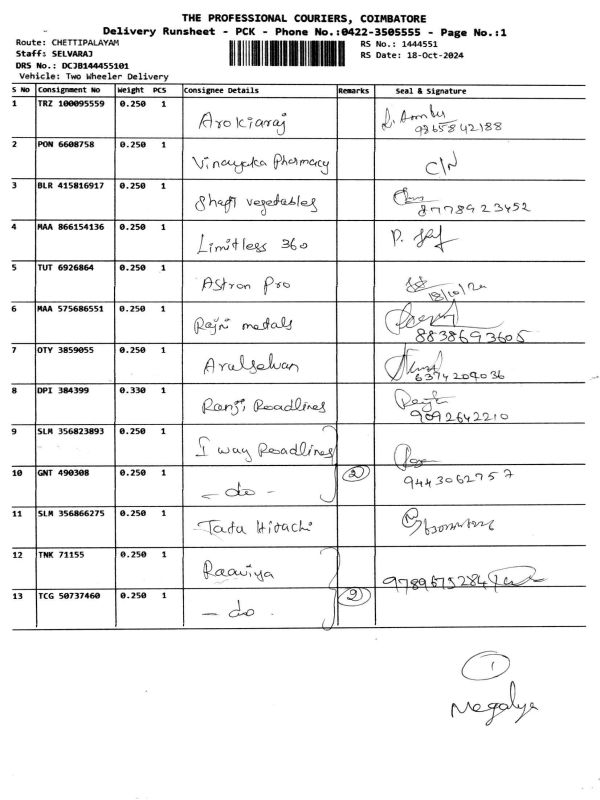 THE PROFESSIONAL COURIERS, COIMBATORE
Delivery Runsheet - PCK - Phone No.:0422-3505555 - Page No.:1
Route: CHETTIPALAYAM RS No.: 1444551
Staff: SELVARAJ RS Date: 18-Oct-2024
DRS No.: DCJB144455101
Vehicle: Two Wheeler Delivery
S No Consignment No Weight PCS Consignee Details Remarks Seal & Signature
1 TRZ 100095559 0.250 1 Arokiaraj
9365842188
2 PON 6608758 0.250 1 Vinayaka Pharmacy C/N
3 BLR 415816917 0.250 1 Shafi vegetables 8778923452
4 MAA 866154136 0.250 1 Limitless 360
5 TUT 6926864 0.250 1 Astron Pro
18/10/24
6 MAA 575686551 0.250 1 Rajni metals
8838693605
7 OTY 3859055 0.250 1 Arulselvan 6374204036
8 DPI 384399 0.330 1 Ranji Roadlines
9092642210
9 SLM 356823893 0.250 1 I way Roadlines
10 GNT 490308 0.250 1 - do - 2 9443062757
11 SLM 356866275 0.250 1 Tata Hitachi
12 TNK 71155 0.250 1 Raaviya 9789675284
13 TCG 50737460 0.250 1 - do 2
1
Megalya